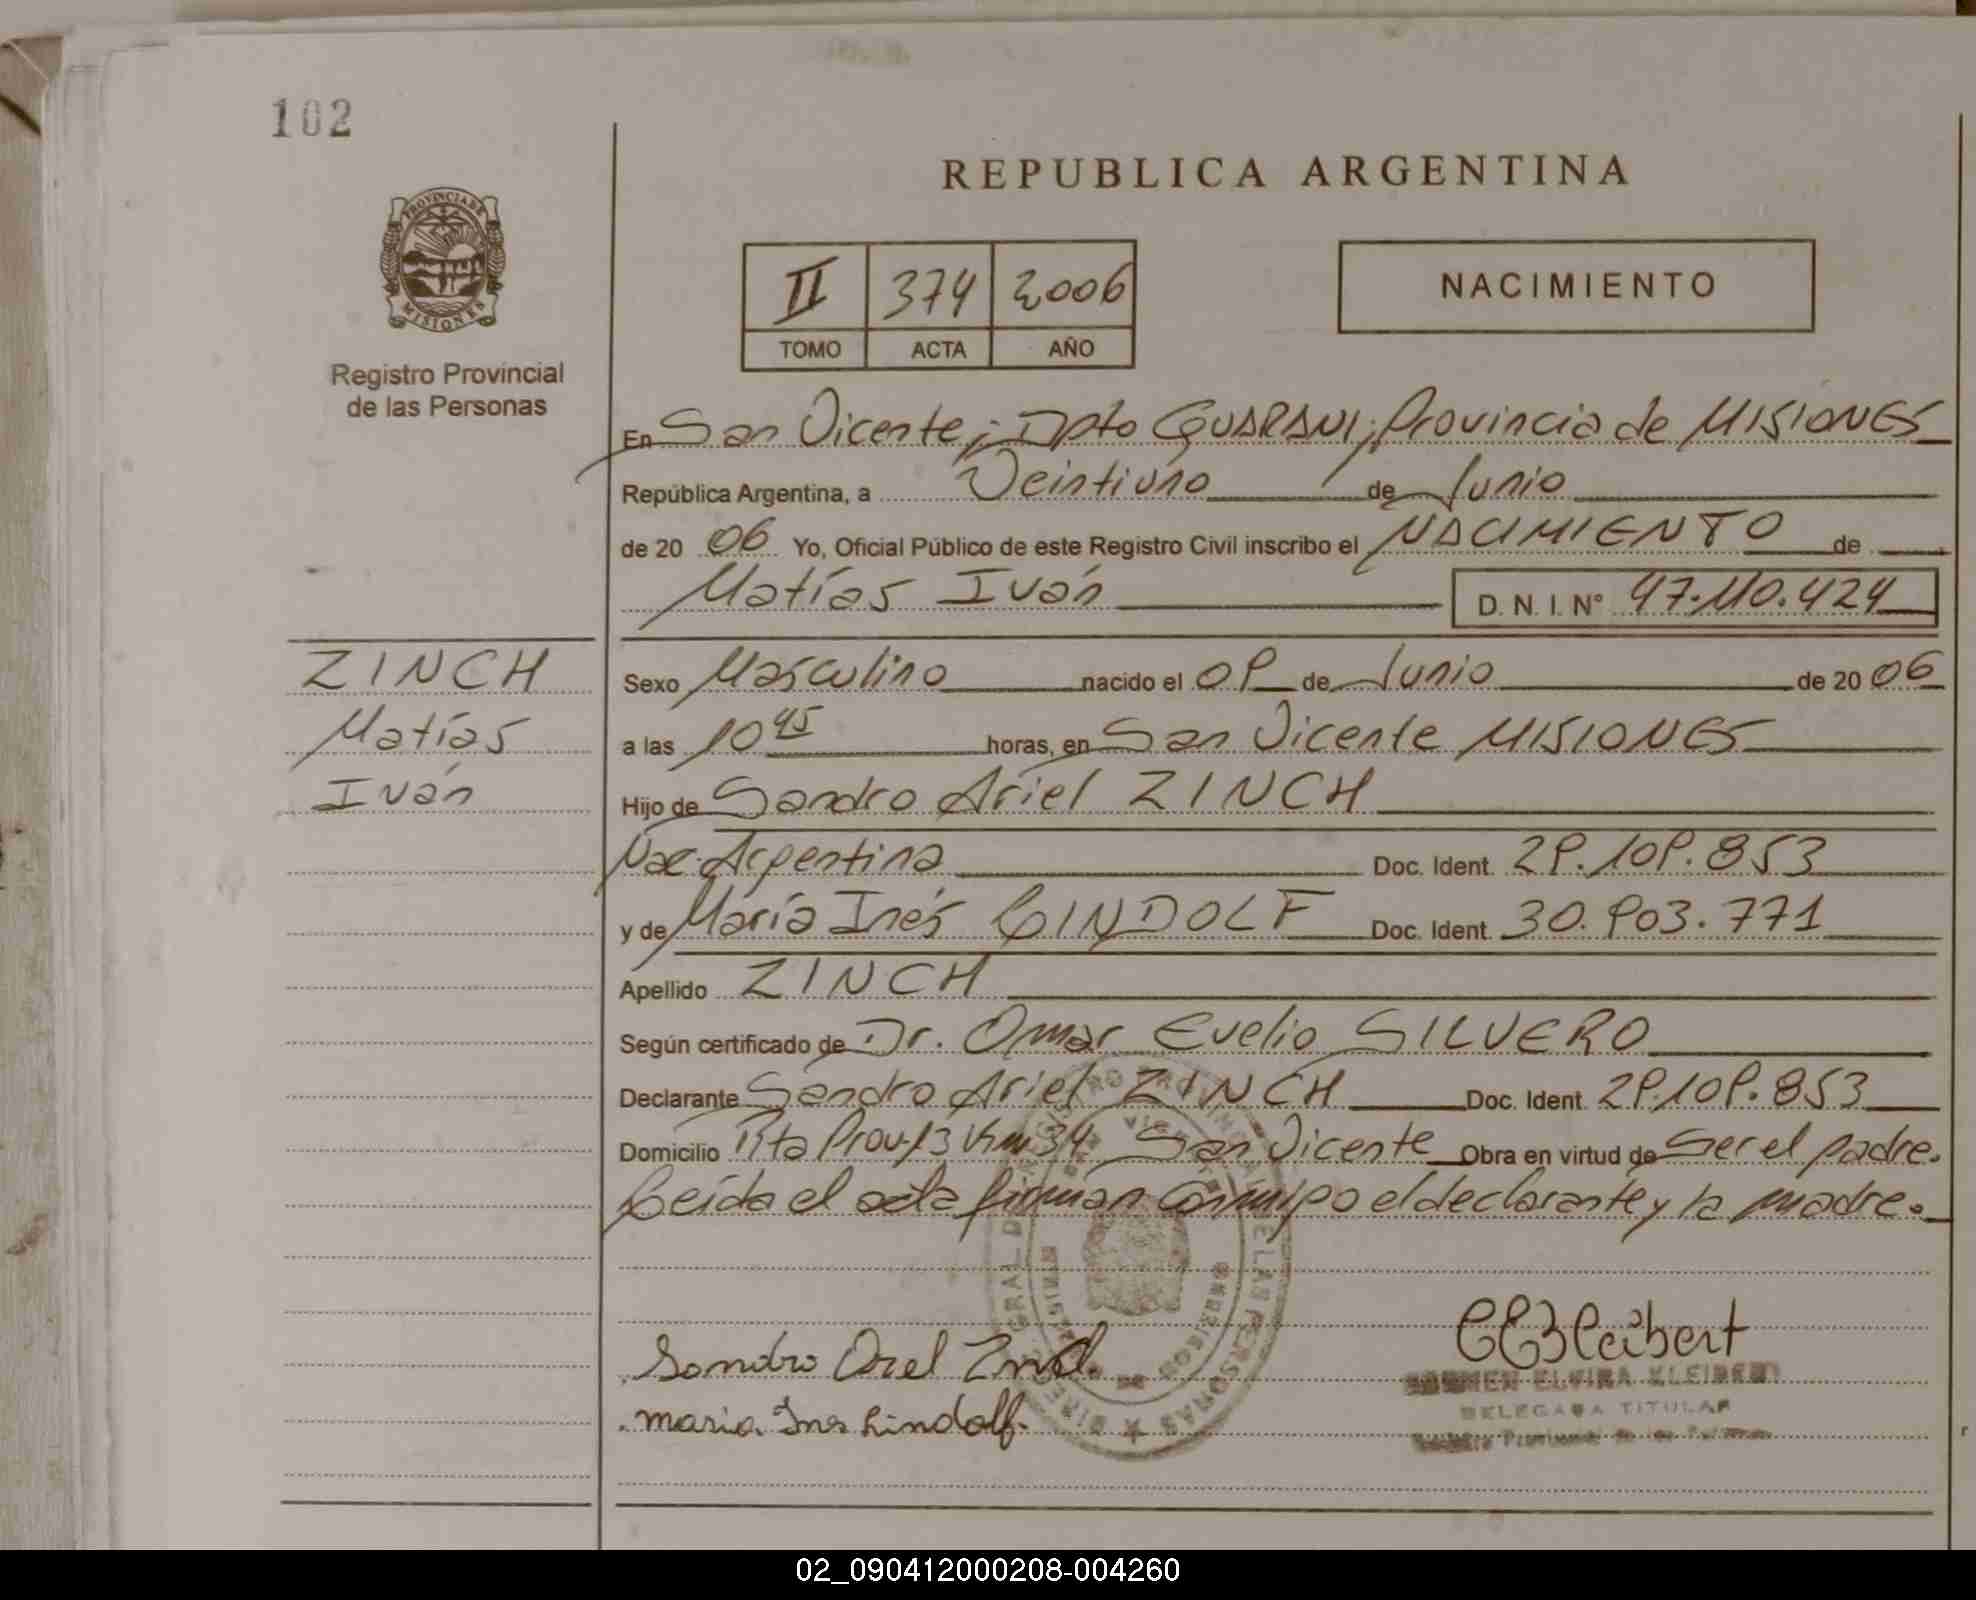 102
REPUBLICA ARGENTINA
PROVINCIA DE MISIONES
II 374 2006
TOMO ACTA AÑO
NACIMIENTO
Registro Provincial
de las Personas
En San Vicente, Dpto GUARANI, Provincia de MISIONES
República Argentina, a Veintiuno de Junio
de 2006 Yo, Oficial Público de este Registro Civil inscribo el NACIMIENTO de
Matías Iván D. N. I. N° 47.110.424
ZINCH
Matías
Iván
Sexo Masculino nacido el 09 de Junio de 2006
a las 10 45 horas, en San Vicente MISIONES
Hijo de Sandro Ariel ZINCH
Nac. Argentina Doc. Ident. 29.109.853
y de María Inés LINDOLF Doc. Ident. 30.903.771
Apellido ZINCH
Según certificado de Dr. Omar Evelio SILVERO
Declarante Sandro Ariel ZINCH Doc. Ident. 29.109.853
Domicilio Rta Prov. 13 Km 34 San Vicente Obra en virtud de Ser el padre.
Leída el acta firman conmigo el declarante y la madre.
Sandro Ariel Zinch.
maria Ines Lindolf.
CEKleibert
CARMEN ELVIRA KLEIBERT
DELEGADA TITULAR
Registro Provincial de las Personas
02_090412000208-004260